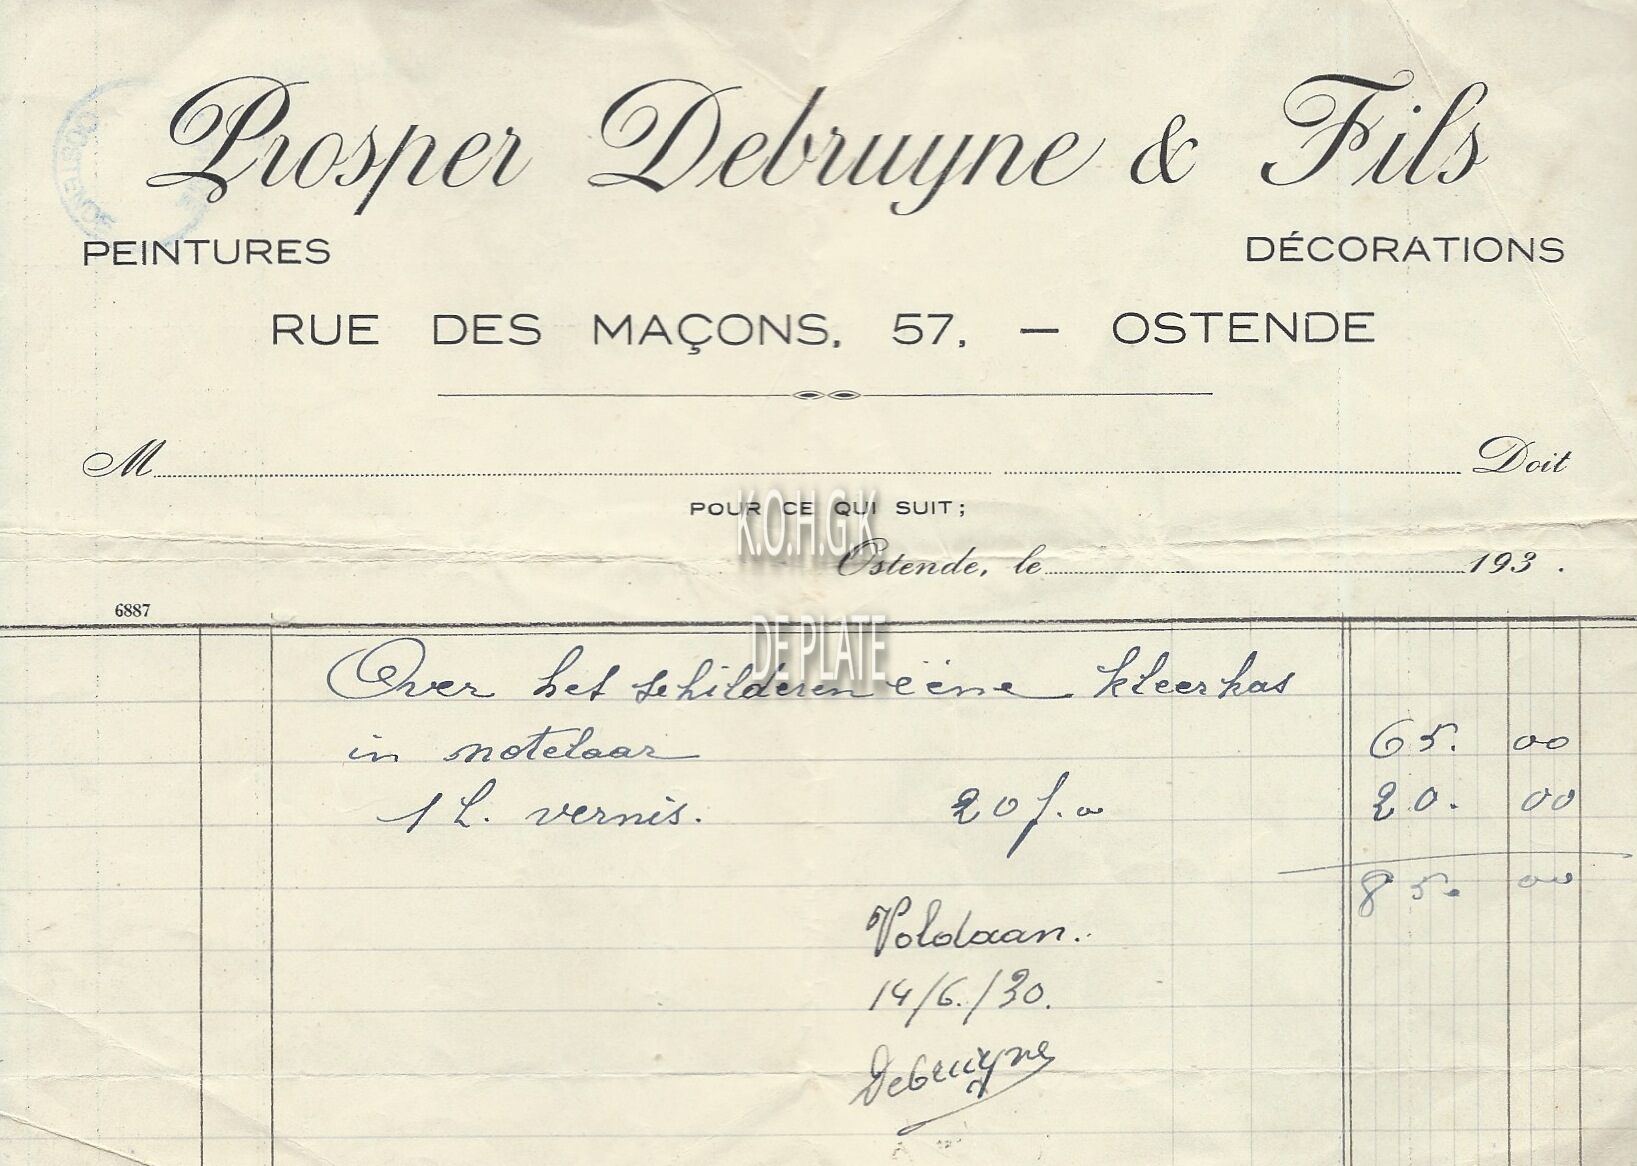 Prosper Debruyne & Fils
PEINTURES DÉCORATIONS
RUE DES MAÇONS, 57, — OSTENDE
M Doit
POUR CE QUI SUIT ;
K.O.H.G.K
Ostende, le 193 .
6887
DE PLATE
Over het schilderen ëëne kleerkas
in notelaar 65. 00
1 L. vernis. 20 f. 00 20. 00
85. 00
Voldaan.
14/6./30.
Debruyne